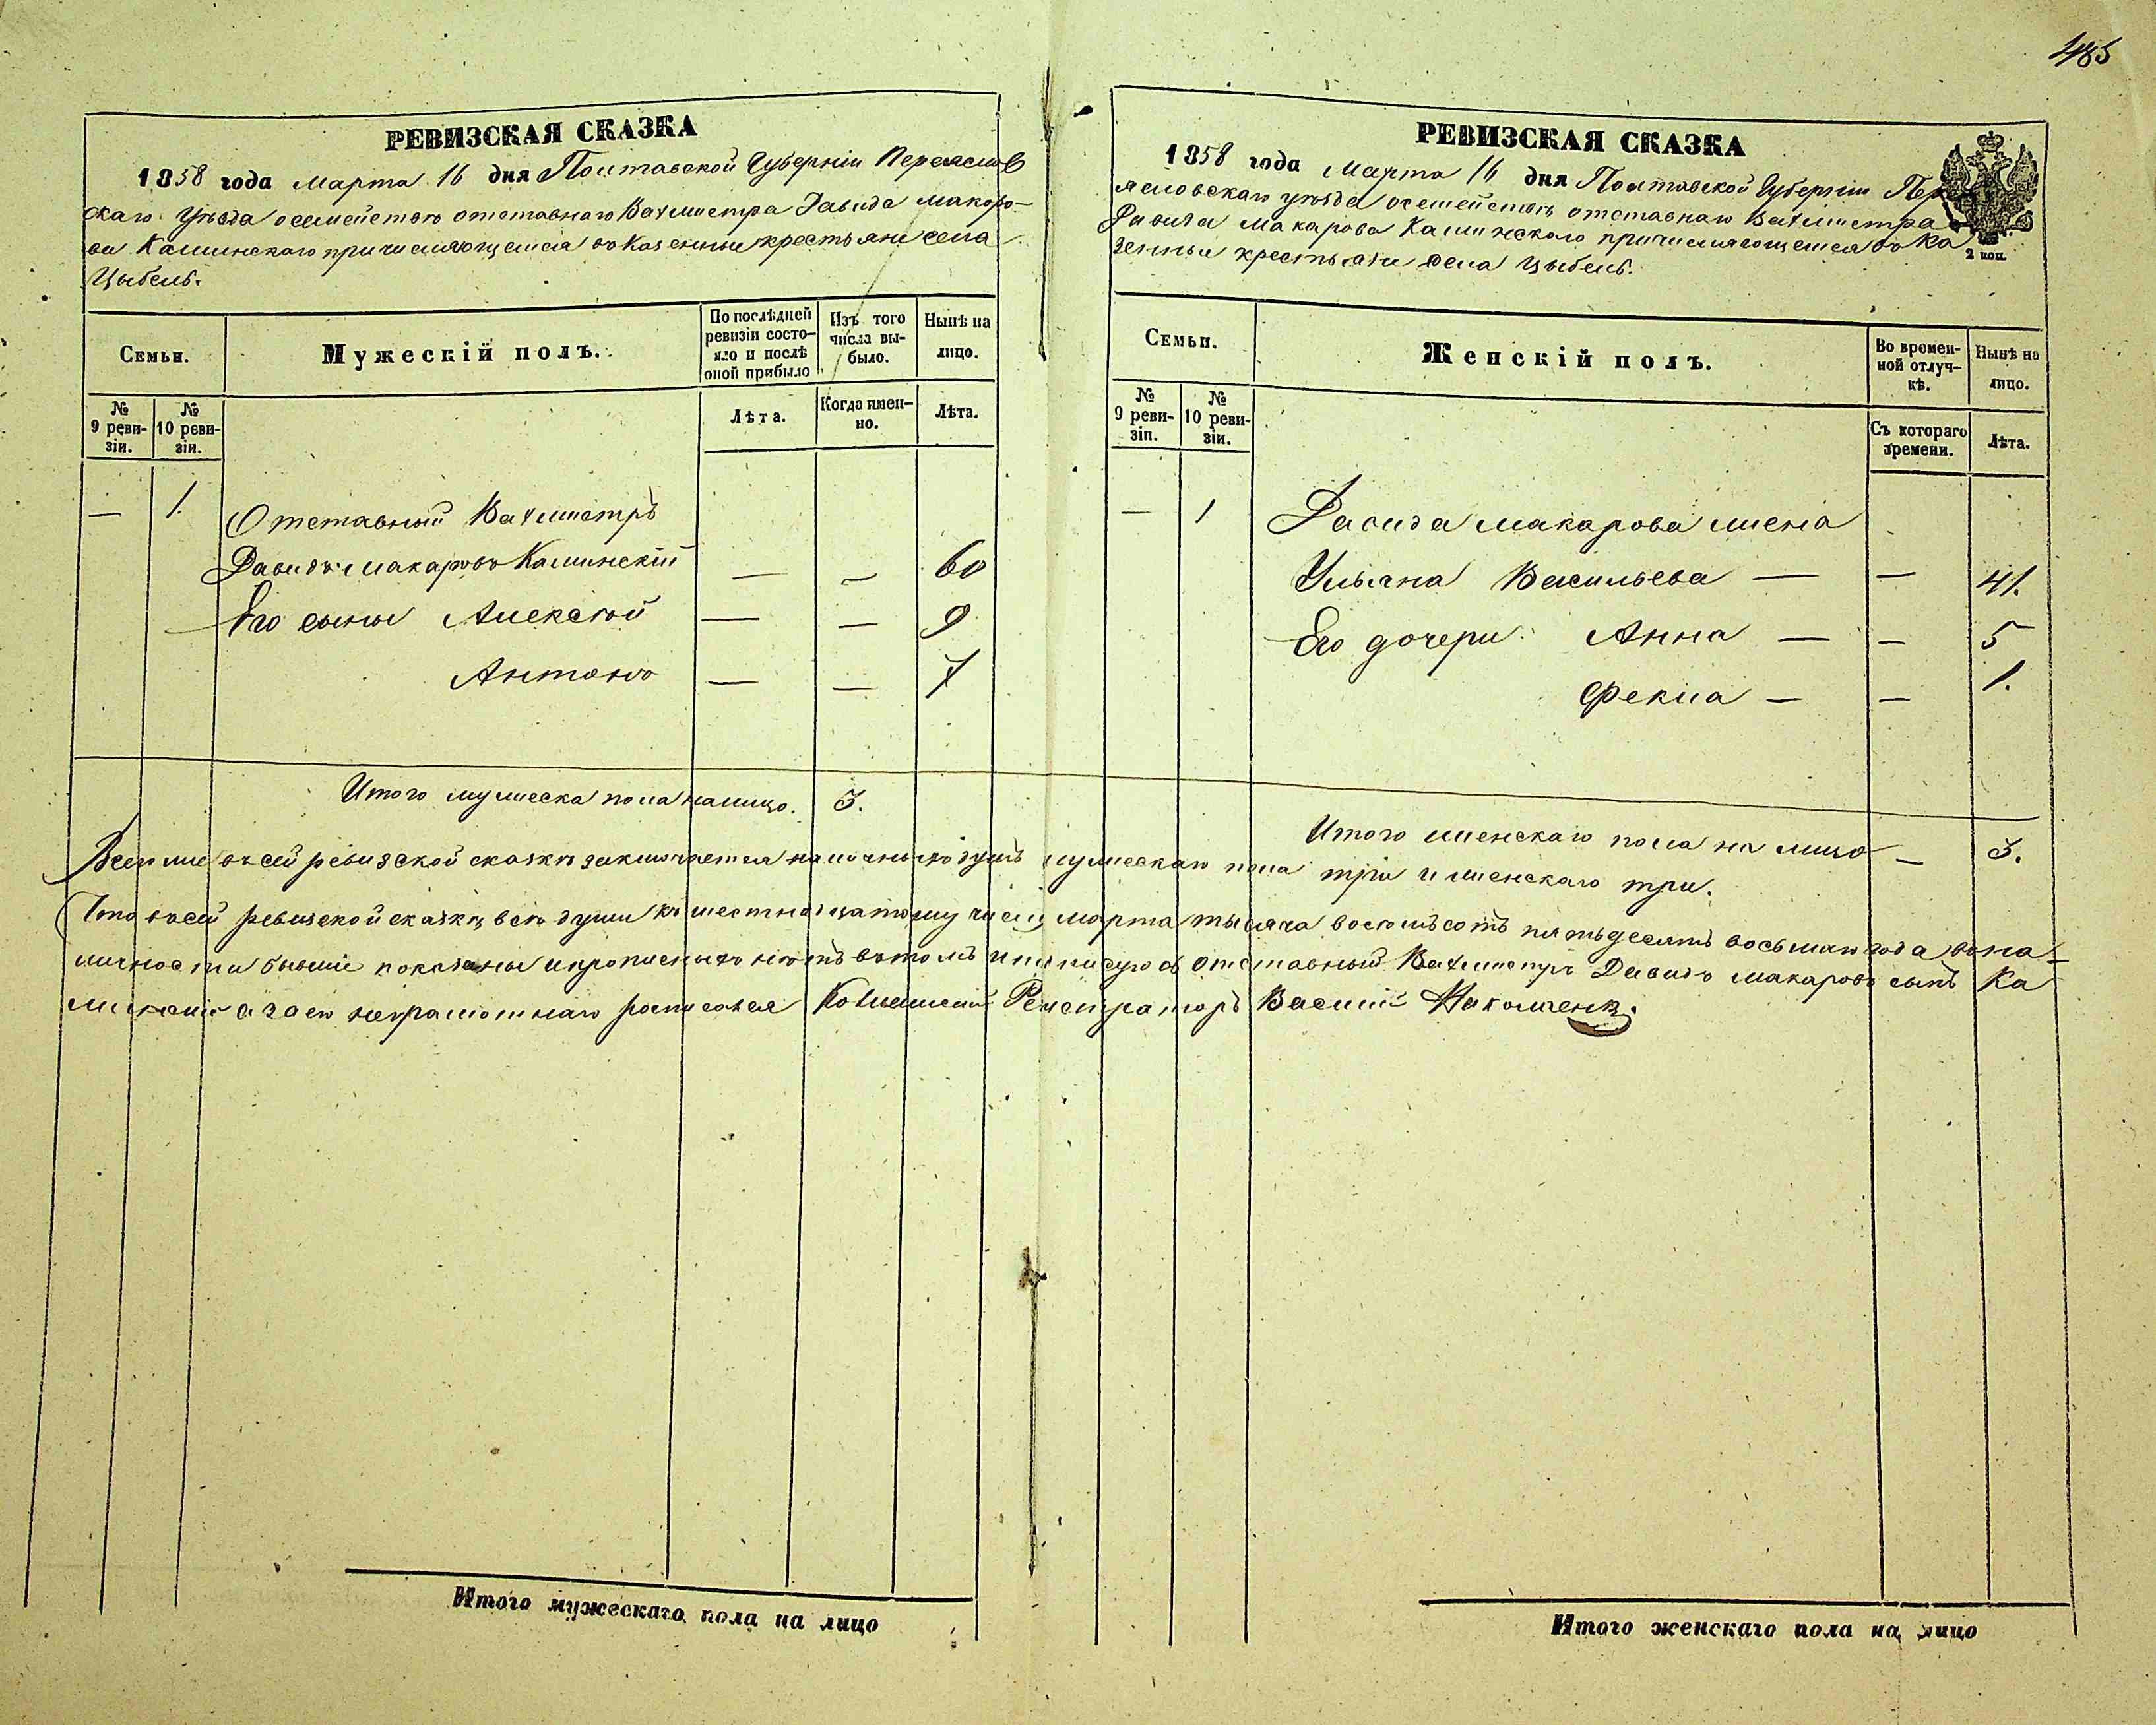 485
РЕВИЗСКАЯ СКАЗКА
1858 года Марта 16 дня Полтавской Губерніи Переяслов
скаго Уѣзда о семействѣ отставнаго Вахмистра Давида Макаро-
ва Каминскаго причисляющемся въ Казенные крестьяне села
Цыбель.
Семьи.
Мужескій полъ.
По послѣдней
ревизіи состо-
яло и послѣ
оной прибыло
Изъ того
числа вы-
было.
Нынѣ на
лицо.
№
9 реви-
зіи.
№
10 реви-
зіи.
Лѣта.
Когда имен-
но.
Лѣта.
— 1. Отставный Вахмистръ
Давидъ Макаровъ Каминскій — — 60
Его сыны Алексѣй — — 9
Антонъ — — 7
Итого мужеска пола налицо. 3.
РЕВИЗСКАЯ СКАЗКА
1858 года Марта 16 дня Полтавской Губерніи Пер
яславскаго уѣзда о семействѣ отставнаго Вахмистра
Давида Макарова Каминскаго причисляющемся въ Ка
зенные крестьяне села Цыбель.
2 коп.
Семьи.
Женскій полъ.
Во времен-
ной отлуч-
кѣ.
Нынѣ на
лицо.
№
9 реви-
зіи.
№
10 реви-
зіи.
Съ котораго
времени.
Лѣта.
— 1 Давида Макарова жена
Ульяна Васильева — — 41.
Его дочери Анна — — 5
Фекла — — 1.
Итого женскаго пола на лицо — 3.
Всего же въ сей ревизской сказкѣ заключается наличныхъ душъ мужескаго пола три и женскаго три.
Что въ сей ревизской сказкѣ всѣ души къ шестнадцатому числу марта тысяча восемьсотъ пятьдесятъ восьмаго года въ на-
личности бывшіе показаны и прописныхъ нѣтъ въ томъ и подписуюсь отставный Вахмистръ Давидъ Макаровъ сынъ Ка
минскій а за его неграмотнаго росписался Коллежскій Регистраторъ Василій
Итого мужескаго пола на лицо
Итого женскаго пола на лицо